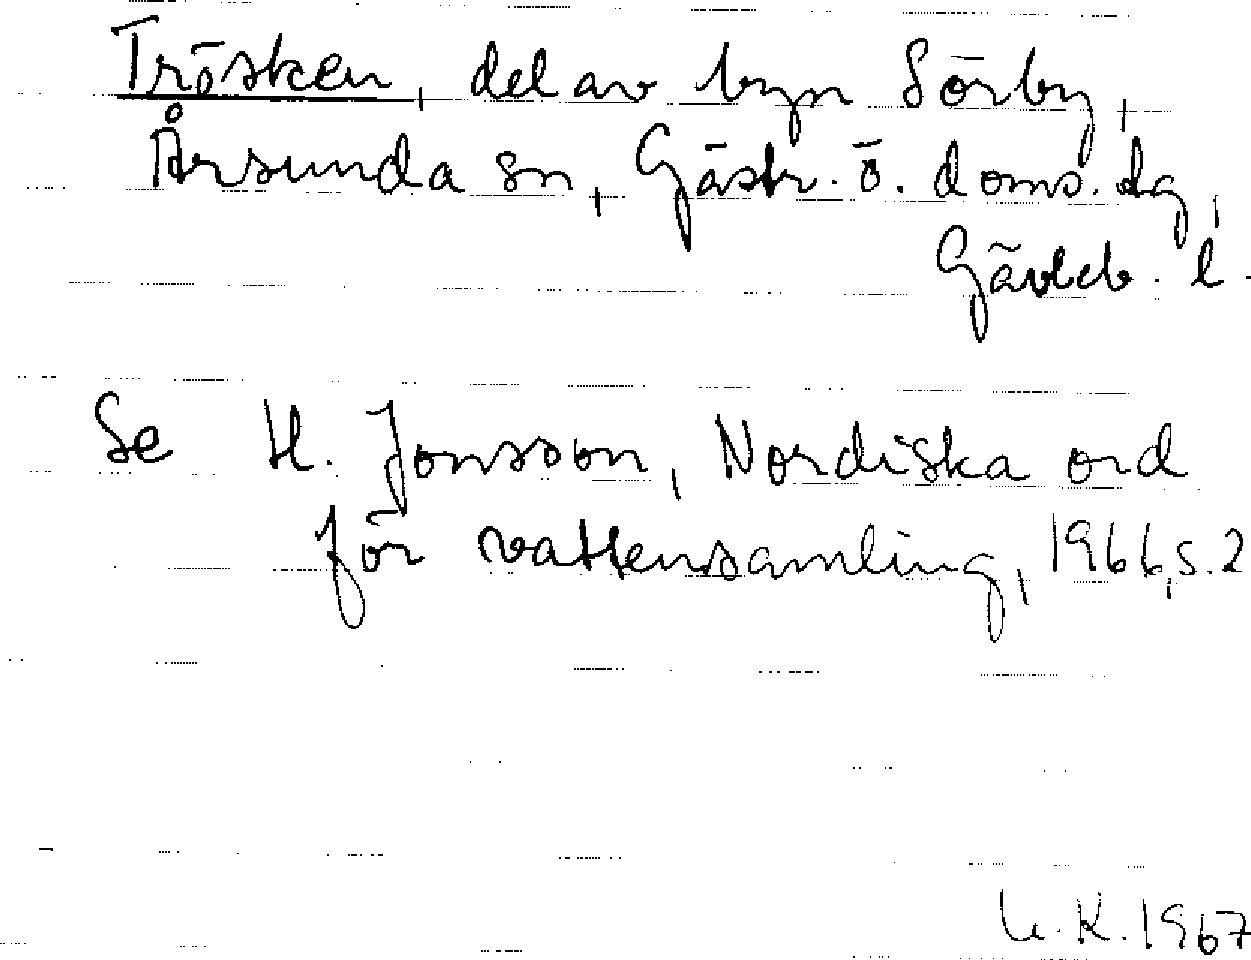 Trösken, del av byn Sörby,
Årsunda sn, Gästr. ö. doms. dg,
Gävleb. l.
Se H. Jonsson, Nordiska ord
för vattensamling, 1966, s. 2
K. 1967